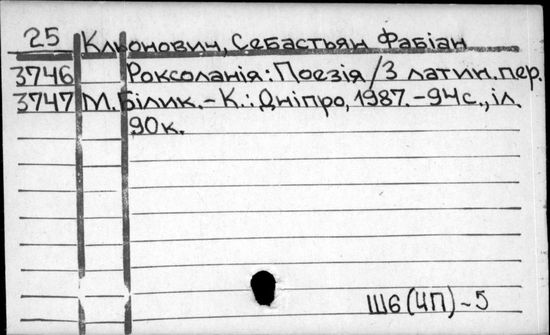 25 Кльонович, Себастьян Фабіан
3746 Роксоланія: Поезія / З латин. пер.
3747 М. Білик. – К.: Дніпро, 1987. – 94 с., іл.
90 к.
Ш6(4П) – 5